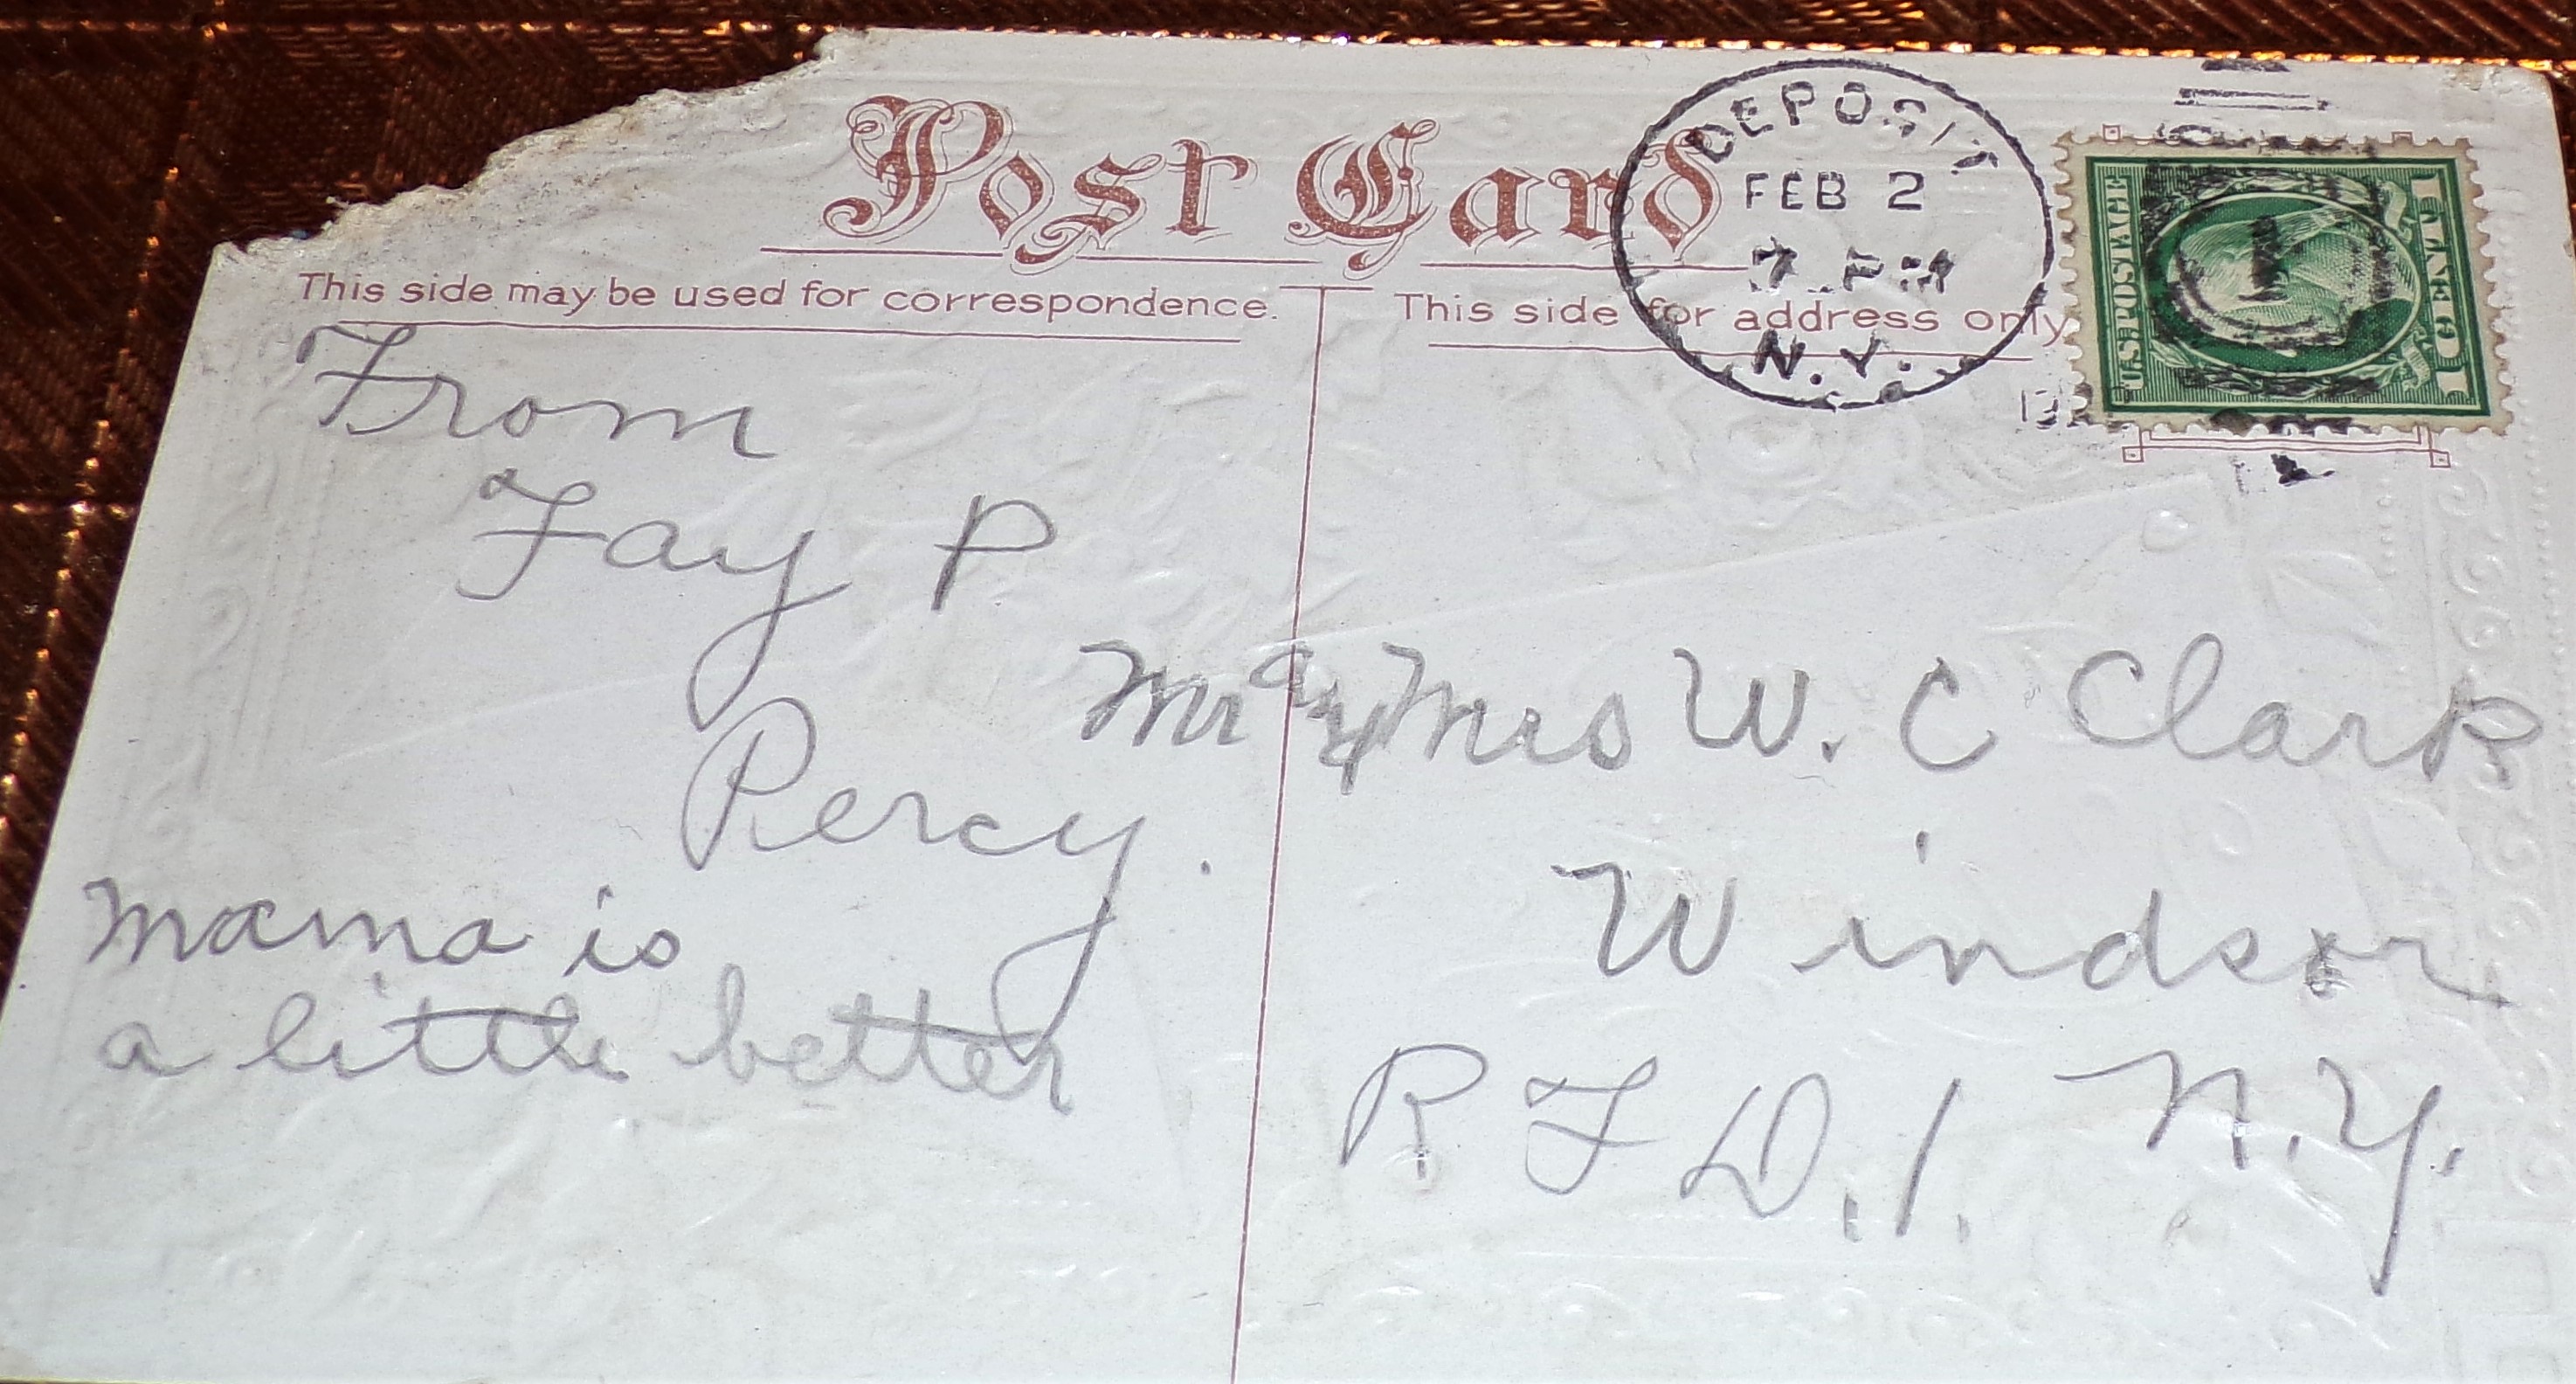 Post Card
DEPOSIT
FEB 2
7 PM
N.Y.
U.S. POSTAGE
1 CENT 1
This side may be used for correspondence.
This side for address only
From
Fay P
Percy.
Mama is
a little better
Mr and Mrs W. C Clark
Windsor
R F D. 1. N.Y.